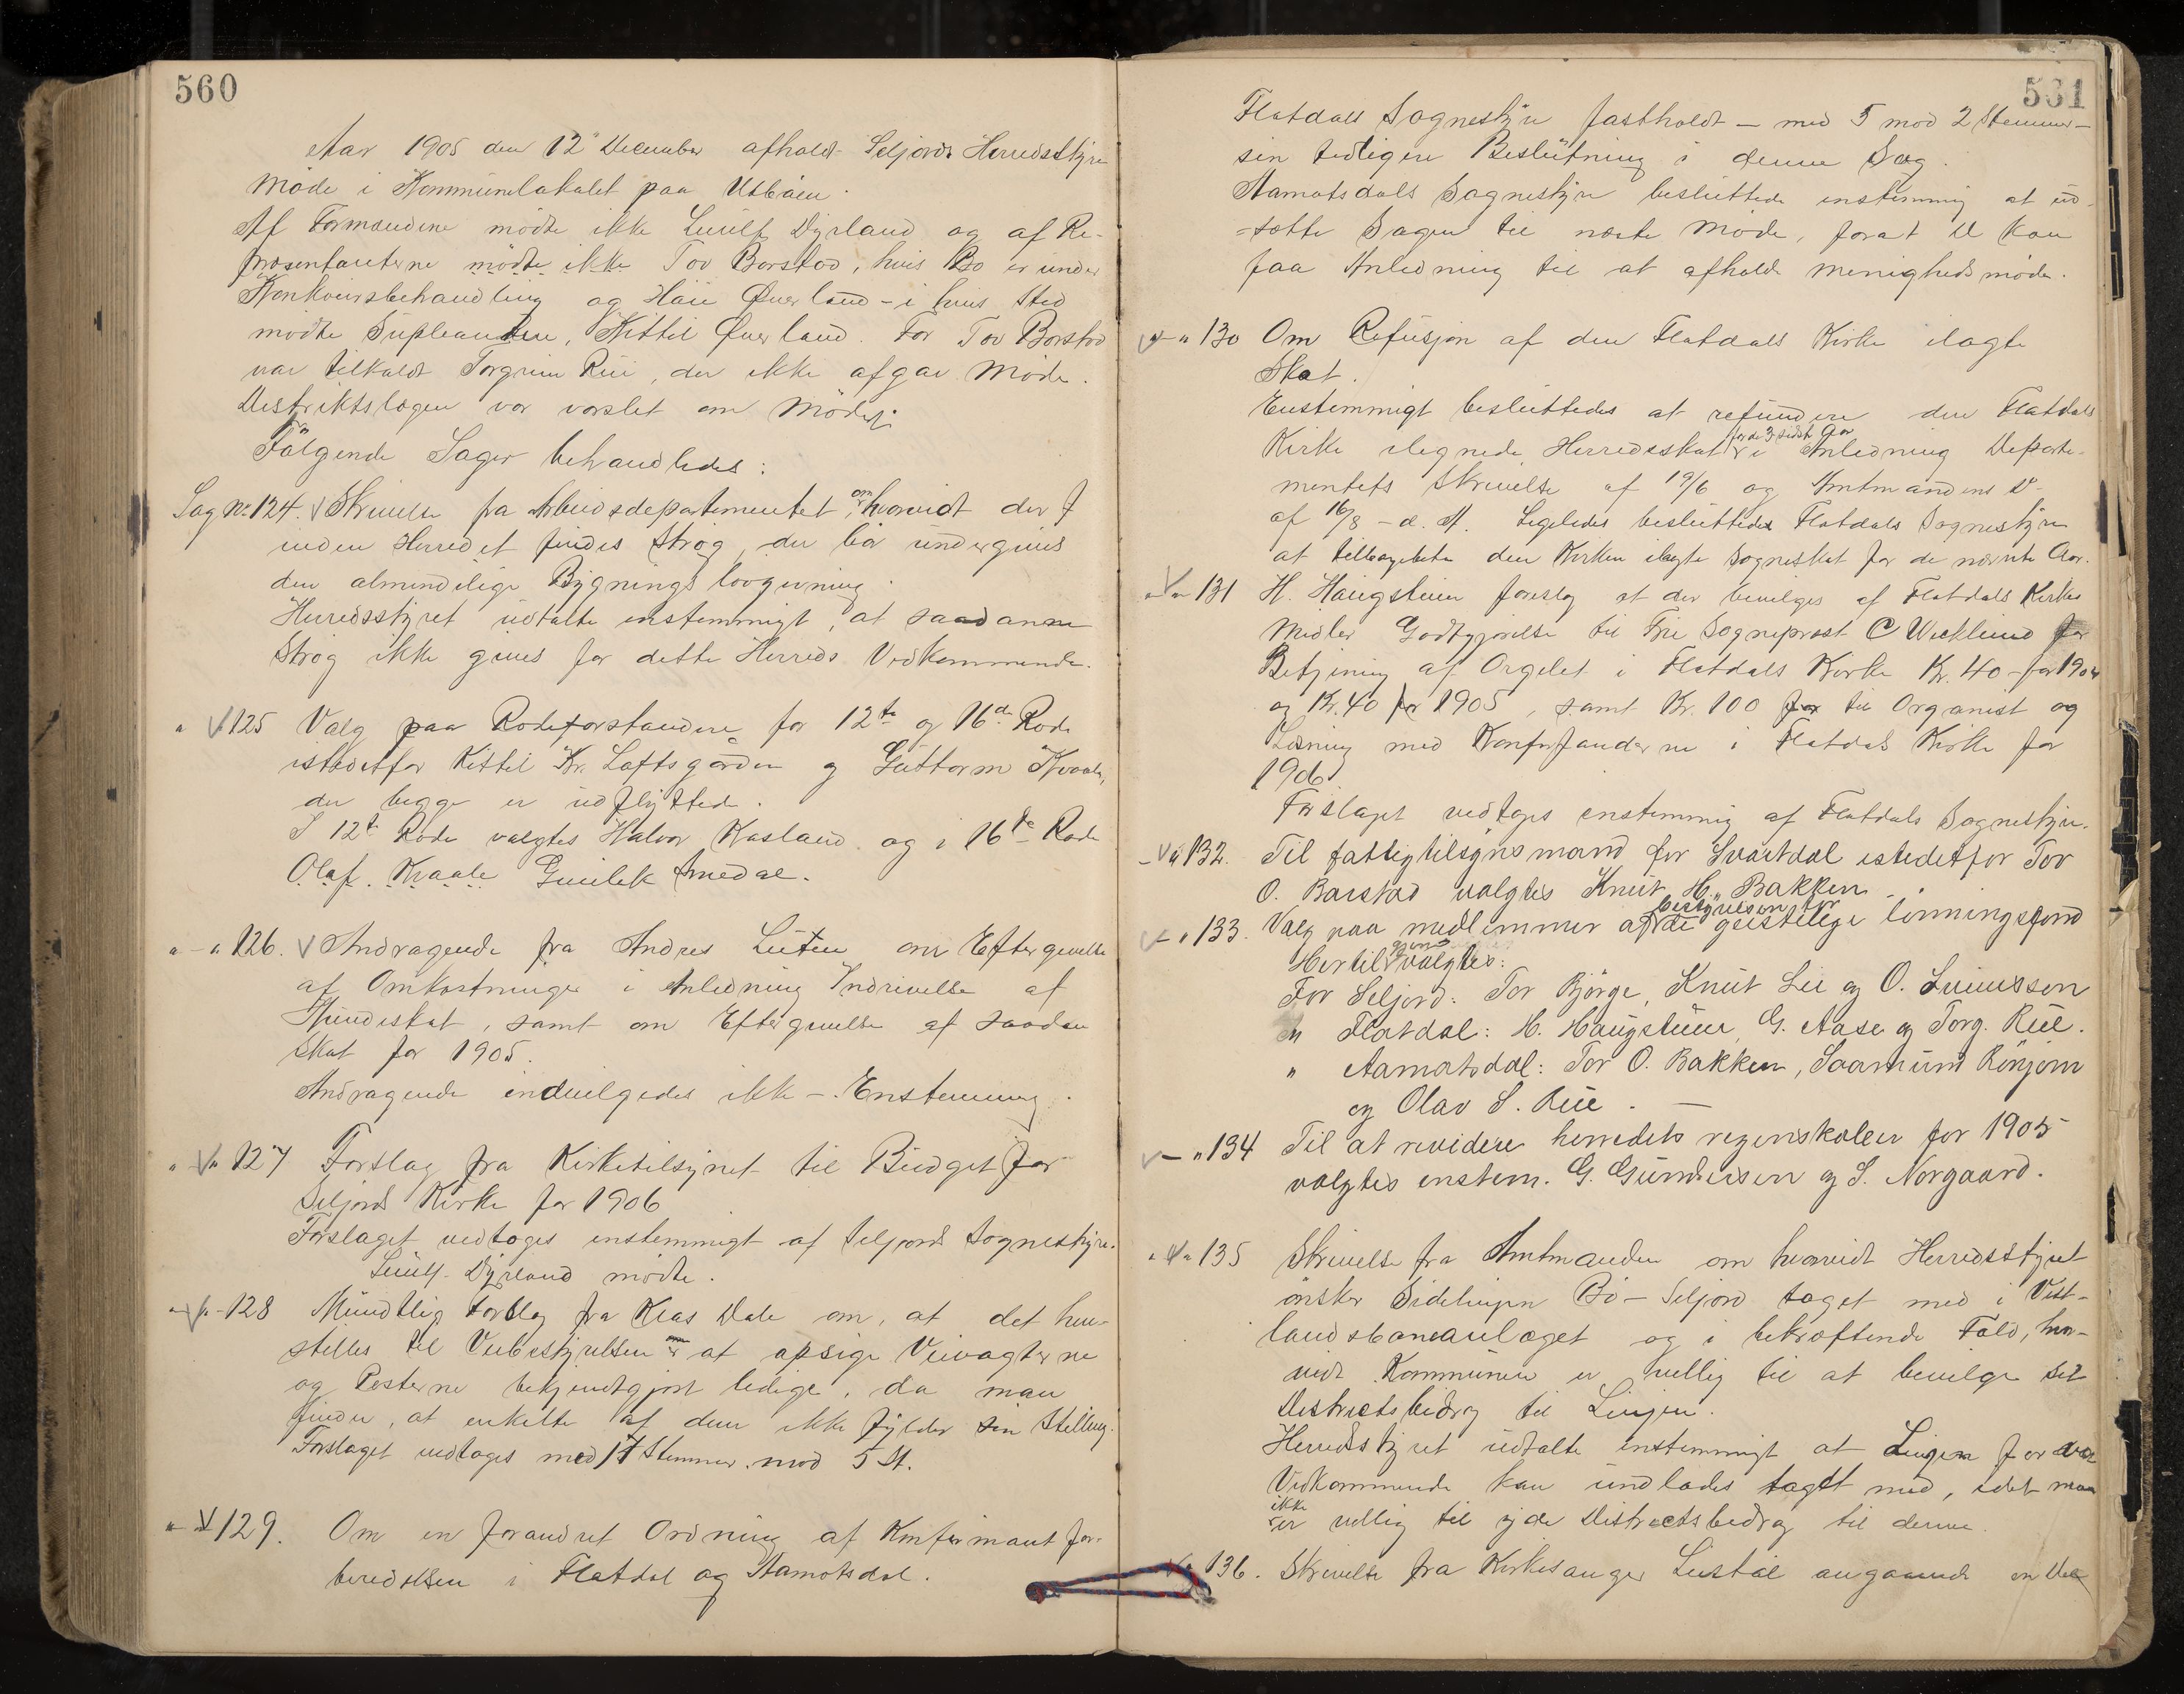 560
Aar 1905 den 12 December afholdt Seljords Herredsstyre
Møde i Kommunelokalet paa Utbøen.
Af Formændene mødte ikke Leiulf Dyrland og af Re-
præsentanterne mødte ikke Tov Borstad, hvis Bo er under
Konkursbehandling og Haii Øverland - i hvis Sted
mødte Supleanten, Kittil Øverland. For Tov Borstad
var tilkaldt Torgrim Rue, der ikke afgav Møde.
Distriktslægen var varslet om Mødet.
Følgende Sager behandledes:
Sag No 124. Skrivelse fra Arbeidsdepartementet om hvorvidt der I
inden Herredet findes Strøg, der bør undergives
den almindelige Bygningslovgivning.
Herredsstyret udtalte enstemmigt, at saadanne
Strøg ikke gives for dette Herreds Vedkommende.
" 125 Valg paa Rodeforstandere for 12te og 16de Rode
istedetfor Kittil Kr. Loftsgarden og Guttorm Kvaale,
der begge er udflyttede.
I 12te Rode valgtes Halvor Kasland og i 16de Rode
Olaf Kvaale Gunlek Amedal.
" - " 126. Andragende fra Andres Luten om Eftergivelse
af Omkostninger i Anledning Inddrivelse af
Hundeskat, samt om Eftergivelse af saadan
Skat for 1905.
Andragende indvilgedes ikke - Enstemmig.
" - " 127 Forslag fra Kirketilsynet til Budget for
Seljords Kirke for 1906
Forslaget vedtoges enstemmigt af Seljords Sognestyre.
Leiulf Dyrland mødte.
" - 128 Mundtlig Forslag fra Kias Dale om, at det hen-
stilles til Veibestyrelsen om at opsige Veivogterne
og Posterne bekjendtgjort ledige, da man
finder, at enkelte af dem ikke fylder sin Stilling.
Forslaget vedtoges med 17 Stemmer mod 5 St.
" - 129. Om en forandret Ordning af Konfirmantfor-
beredelsen i Flatdal og Aamotsdal.
561
Flatdals Sognestyre fastholdt - med 5 mod 2 Stemmer -
sin tidligere Beslutning i denne Sag.
Aamotsdals Sognestyre besluttede enstemmig at ud-
sætte Sagen til næste Møde, forat de kan
faa Anledning til at afholde Menighedsmøde.
" - " 130 Om Refusjon af den Flatdals Kirke ilagte
Skat.
Enstemmigt besluttedes at refundere den Flatdals
Kirke ilegnede Herredsskat for de 3 sidste Aar i Anledning Departe-
mentets Skrivelse af 19/6 og Amtmandens D-
af 16/8 - d. A. Ligeledes besluttedes Flatdals Sognestyre
at tilbagebetale den Kirken ilagte Sogneskat for de nævnte Aar.
" - " 131 H. Haugstuen foreslog at der bevilges af Flatdals Kirkes
Midler Godtgjørelse til Frue Sogneprest C Wecklund for
Betjening af Orgelet i Flatdals Kirke Kr. 40 - for 1904
og Kr. 40 for 1905, samt Kr. 100 for til Organist og
Læsning med Konfirmanderne i Flatdals Kirke for
1906
Forslaget vedtoges enstemmig af Flatdals Sognestyre.
- " 132. Til fattigtilsynsmand for Svartdal istedetfor Tov
O. Barstad valgtes Knut H. Bakken.
- " 133. Valg paa medlemmer af bestyrelsen for de geistelige lønningsfond
Hertil gjenvalgtes:
For Seljord: Tor Bjørge, Knut Lie og O. Svenssen
" Flatdal: H. Haugstuen, G. Aase og Torg. Rue.
" Aamotsdal: Tor O. Bakken, Saamund Rønjom
og Olav S. Rue. -
- " 134 Til at revidere herredets regnskaber for 1905
valgtes enstem. G. Gundersen og S. Norgaard.
" - " 135 Skrivelse fra Amtmanden om hvorvidt Herredsstyret
ønsker Sidelinjen Bø - Seljord taget med i Vest-
landsbaneanlæget og i bekræftende Fald, hvor-
vidt Kommunen er villig til at bevilge sit
Distriktsbidrag til Linjen.
Herredsstyret udtalte enstemmigt at Linjen for vor
Vedkommende kan undlades taget med, idet man
ikke er villig til yde Distrectsbidrag til denne.
136. Skrivelse fra Kirkesanger Lustøl angaaende en Del